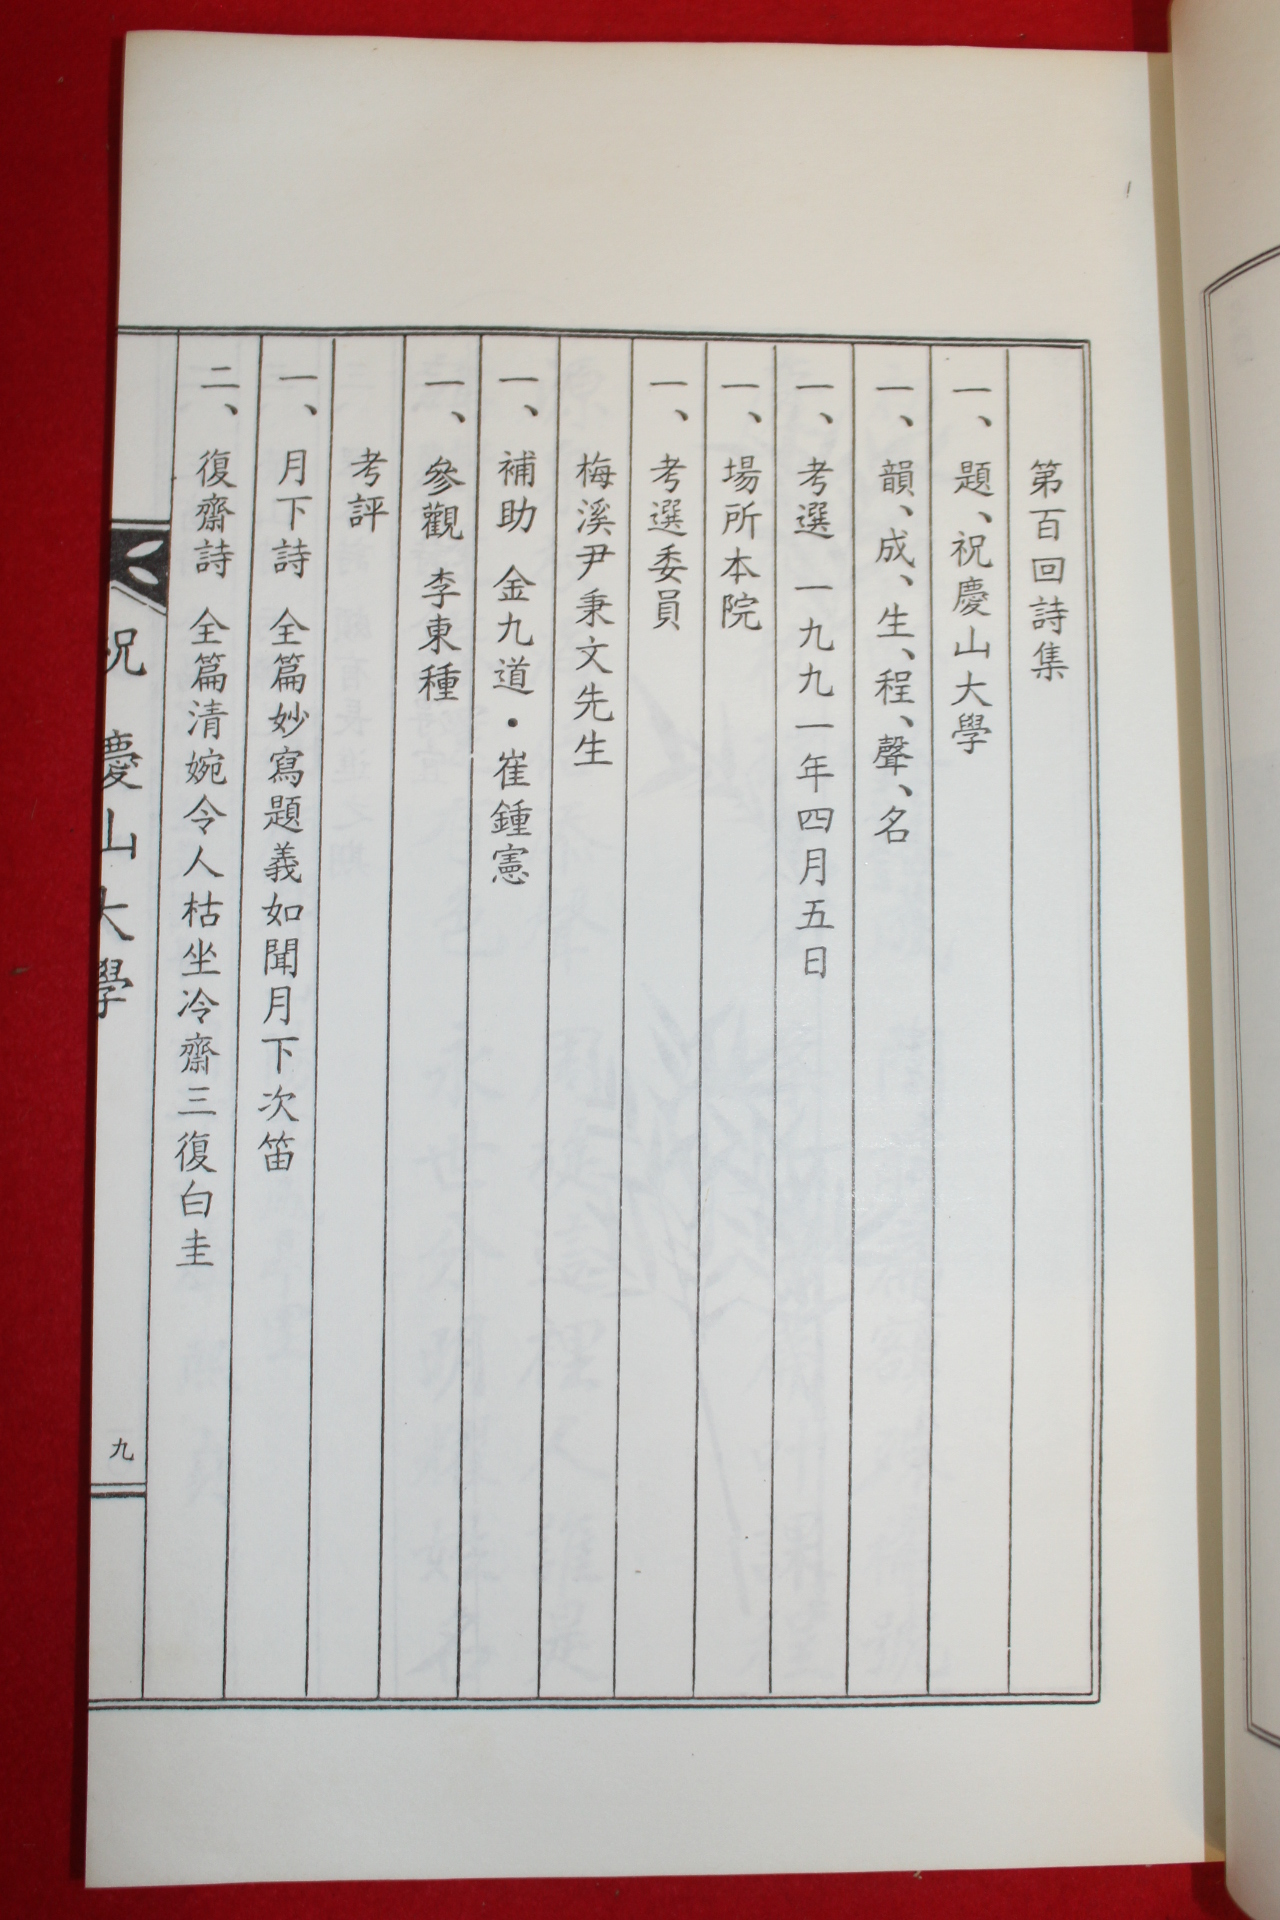 第百回詩集
一、題、祝慶山大學
一、韻、成、生、程、聲、名
一、考選 一九九一年四月五日
一、場所本院
一、考選委員
梅溪尹秉文先生
一、補助 金九道・崔鍾憲
一、參觀 李東種
考評
一、月下詩 全篇妙寫題義如聞月下次笛
二、復齋詩 全篇清婉令人枯坐冷齋三復白圭
祝 慶山大學
九